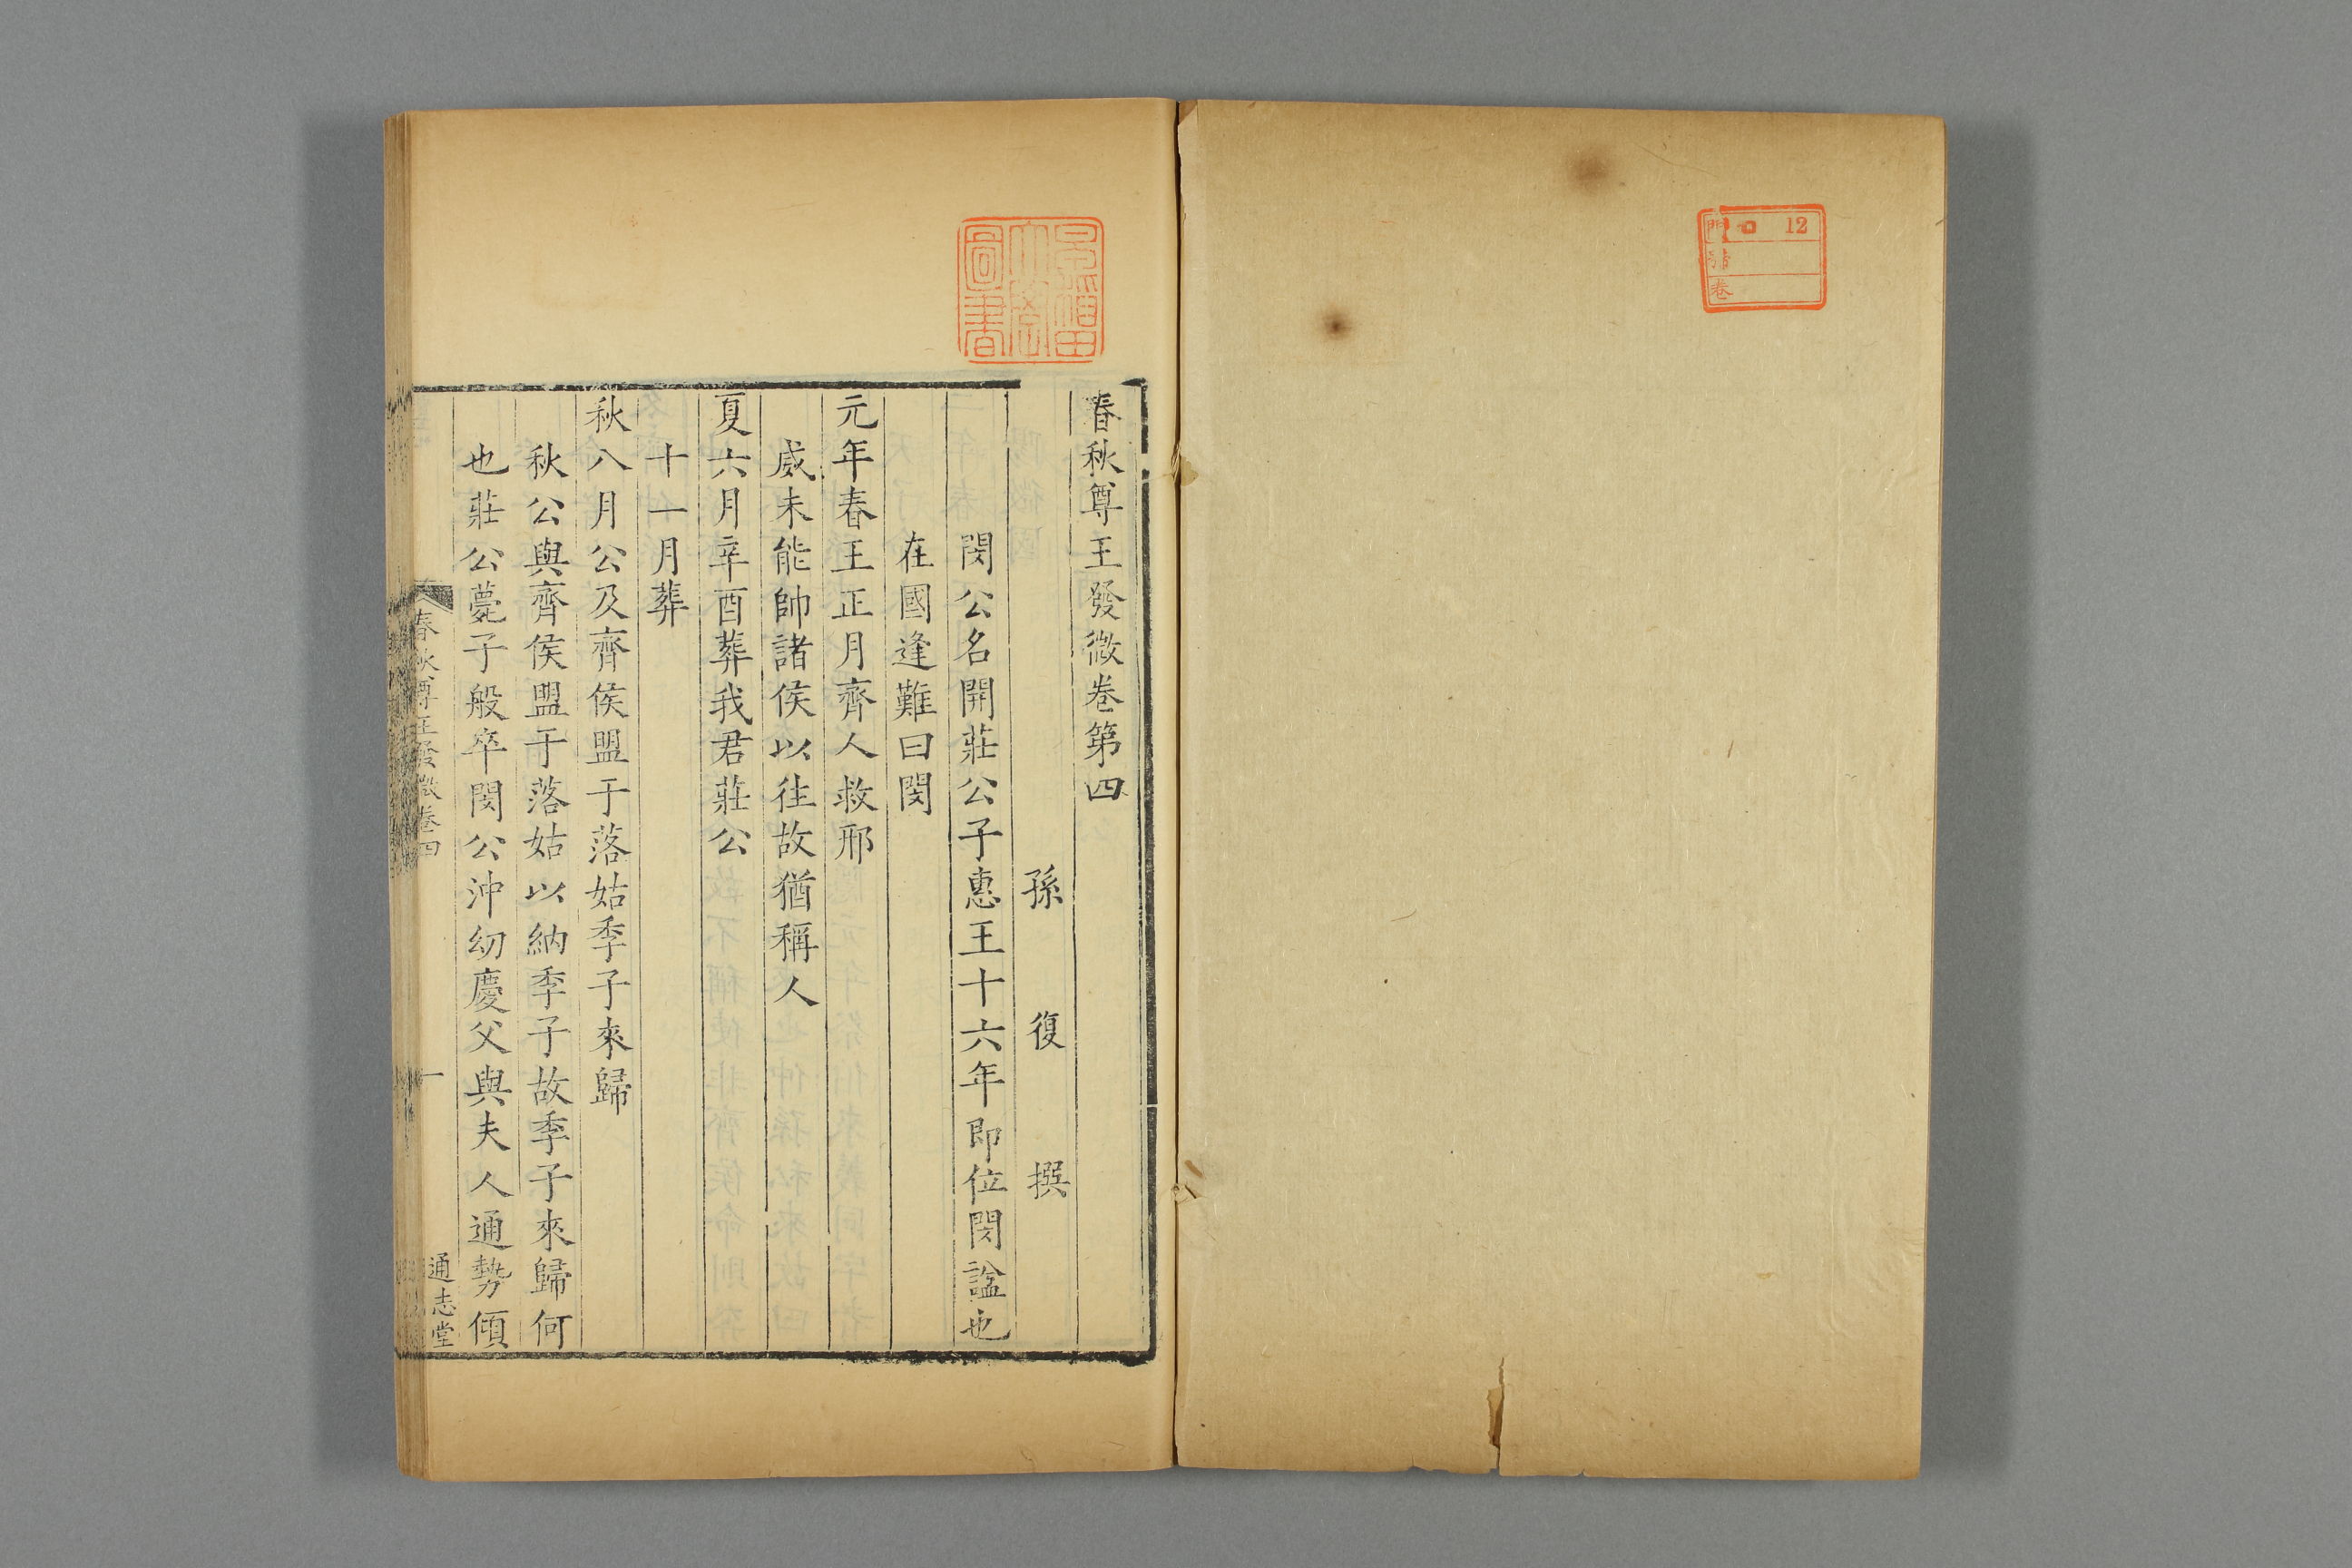 門 口 12
號
卷
圖書
春秋尊王發微卷第四
孫復撰
閔公名開莊公子惠王十六年即位閔諡也
在國逢難曰閔
元年春王正月齊人救邢
威未能帥諸侯以往故猶稱人
夏六月辛酉葬我君莊公
十一月葬
秋八月公及齊侯盟于落姑季子來歸
秋公與齊侯盟于落姑以納季子故季子來歸何
也莊公薨子般卒閔公沖幼慶父與夫人通勢傾
春秋尊王發微卷四
一
通志堂